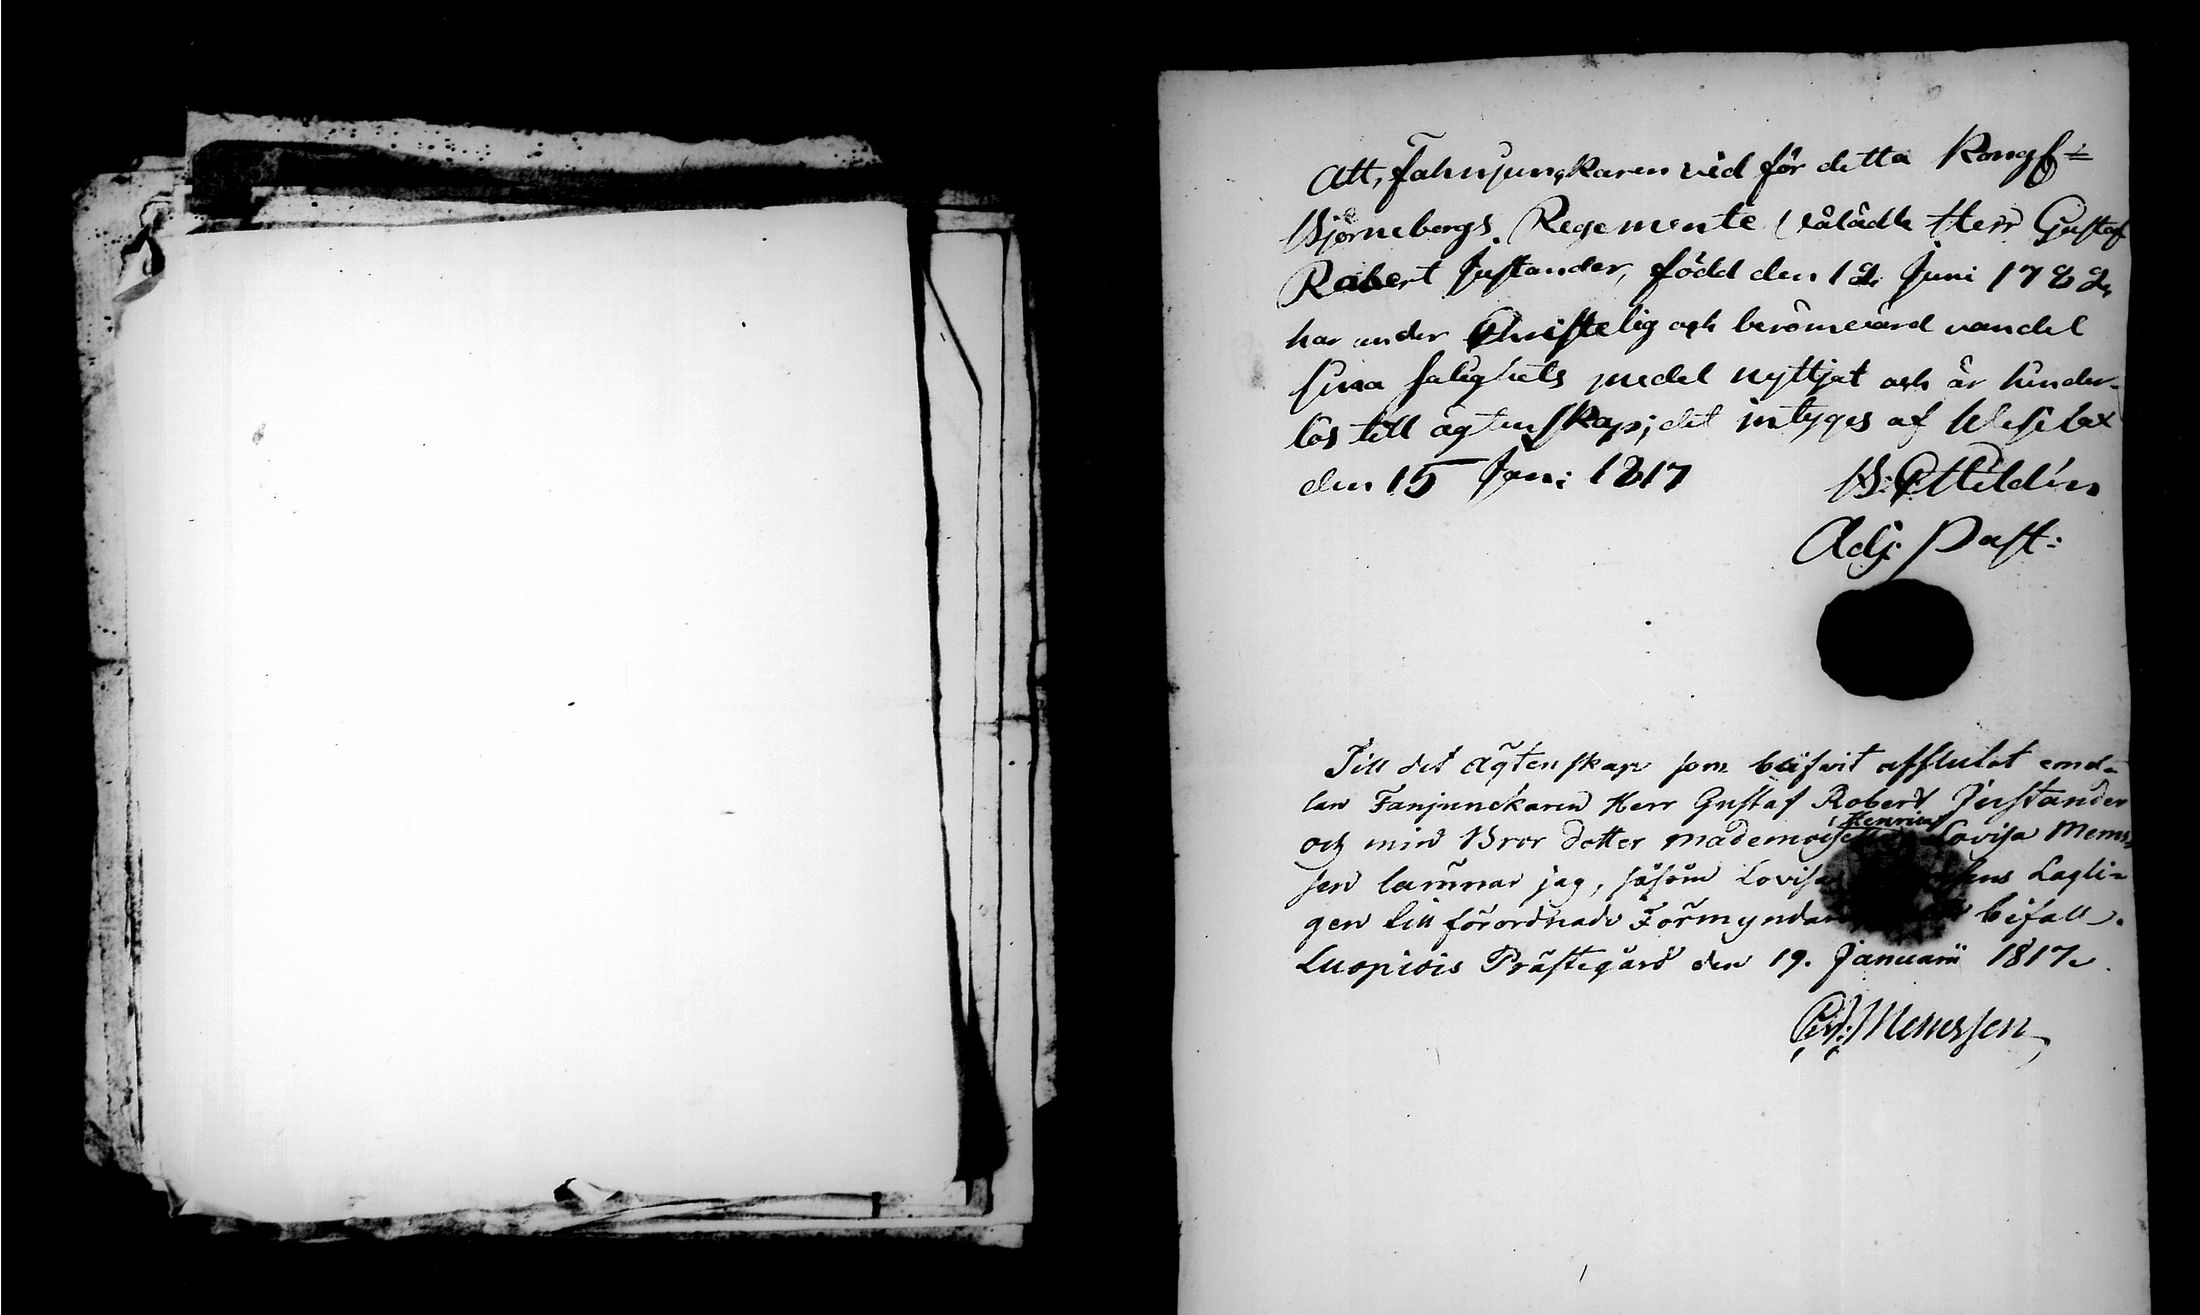 Att, Fahnjunkaren vid för detta Kongl=
Björneborgs Regemente Wälädle Herr Gustaf
Robert Justander, född den 12 Juni 1782,
har under Christelig och berömvärd vandel
sina salighets medel nyttjat och är hinder-
lös till ägtenskap; det intyges af Wesilax
den 15 Jan: 1817
Adj: Past:
Till det ägtenskap som blifvit afslutat emel-
lan Fanjunckaren Herr Gustaf Robert Justander
och min Bror dotter Mademoiselle Henrica Lovisa Mems-
sen lämnar jag, såsom Lovisa Lagli-
gen till förordnade Förmyndare bifall.
Luopiois Prästegård den 19. Januarii 1817.
Memssen